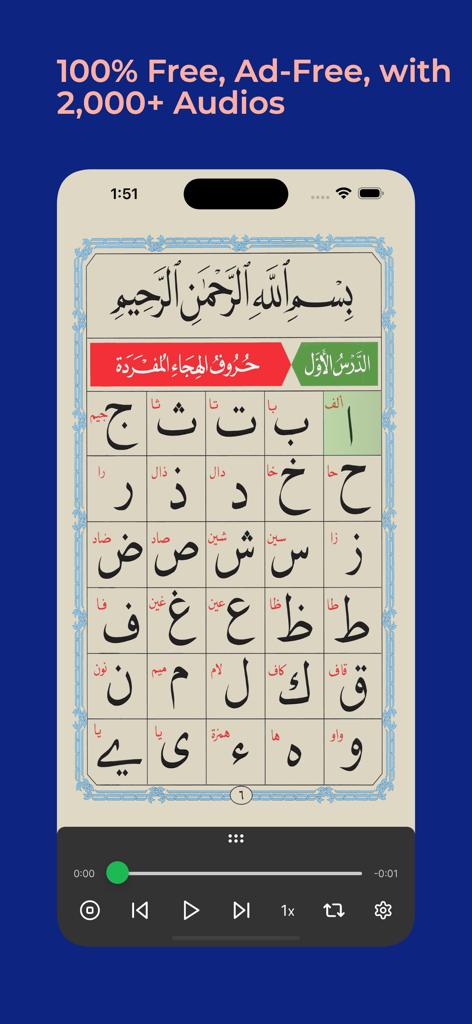 100% Free, Ad-Free, with
2,000+ Audios
1:51
بِسْمِ ٱللَّهِ ٱلرَّحْمَٰنِ ٱلرَّحِيمِ
الدَّرْسُ الْأَوَّل حُرُوفُ الهِجَاءِ المُفْرَدَة
ألف با تا ثا جيم
ا ب ت ث ج
حا خا دال ذال را
ح خ د ذ ر
زا سين شين صاد ضاد
ز س ش ص ض
طا ظا عين غين فا
ط ظ ع غ ف
قاف كاف لام ميم نون
ق ك ل م ن
واو ها همزة يا يا
و ه ء ى ے
٦
0:00 -0:01
1x